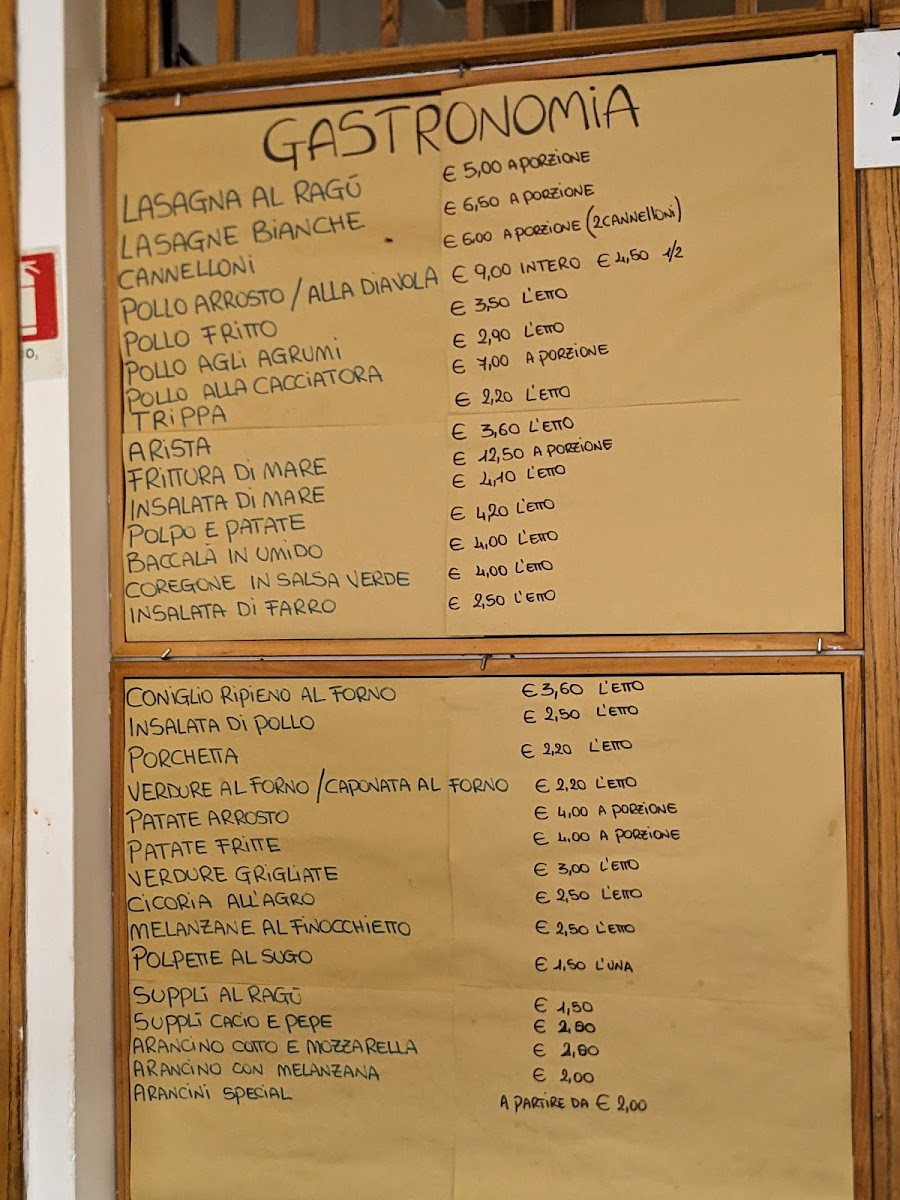 GASTRONOMiA
LASAGNA AL RAGŪ € 5,00 A PORZIONE
LASAGNE BiANCHE € 6,50 A PORZIONE
CANNELLONi € 6.00 A PORZIONE (2 CANNELLONI)
POLLO ARROSTO / ALLA DIAVOLA € 9,00 INTERO € 4,50 1/2
POLLO FRITTO € 3,50 L'ETTO
POLLO AGLi AGRUMi € 2,90 L'ETTO
POLLO ALLA CACCiATORA € 7,00 A PORZIONE
TRiPPA € 2,20 L'ETTO
ARISTA € 3,60 L'ETTO
FRITTURA Di MARE € 12,50 A PORZIONE
INSALATA Di MARE € 4,10 L'ETTO
POLPO E PATATE € 4,20 L'ETTO
BACCALÀ IN UMiDO € 4,00 L'ETTO
COREGONE IN SALSA VERDE € 4,00 L'ETTO
INSALATA Di FARRO € 2,50 L'ETTO
CONiGLIO RiPiENO AL FORNO € 3,60 L'ETTO
INSALATA Di POLLO € 2,50 L'ETTO
PORCHETTA € 2,20 L'ETTO
VERDURE AL FORNO / CAPONATA AL FORNO € 2,20 L'ETTO
PATATE ARROSTO € 4,00 A PORZIONE
PATATE FRITTE € 4,00 A PORZIONE
VERDURE GRIGLIATE € 3,00 L'ETTO
CICORIA ALL'AGRO € 2,50 L'ETTO
MELANZANE AL FINOCCHIETTO € 2,50 L'ETTO
POLPETTE AL SUGO € 1,50 L'UNA
SUPPLĪ AL RAGŪ € 1,50
SUPPLĪ CACIO E PEPE
ARANCINO COTTO E MOZZARELLA
ARANCINO CON MELANZANA € 2,00
ARANCINI SPECIAL A PARTIRE DA € 2,00